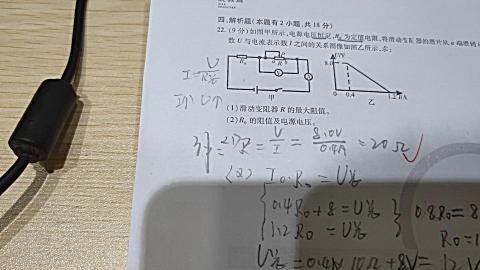 四、解析题(本题有2小题,共18分)
22.(9分)如图甲所示,电源电压恒定,R₀为定值电阻,将滑动变阻器的滑片从a端滑到
数U与电流表示数I之间的关系图像如图乙所示,求:
U/V
8.0
0 0.4 1.2 I/A
甲
乙
(1)滑动变阻器R的最大阻值。
(2)R₀的阻值及电源电压。
R = U/I = 8.0V/0.4A = 20Ω
(2) I₀R₀ = U总
0.4R₀+8=U总
1.2R₀=U总
0.8R₀=8
U总=0.4A×10Ω+8V=12V